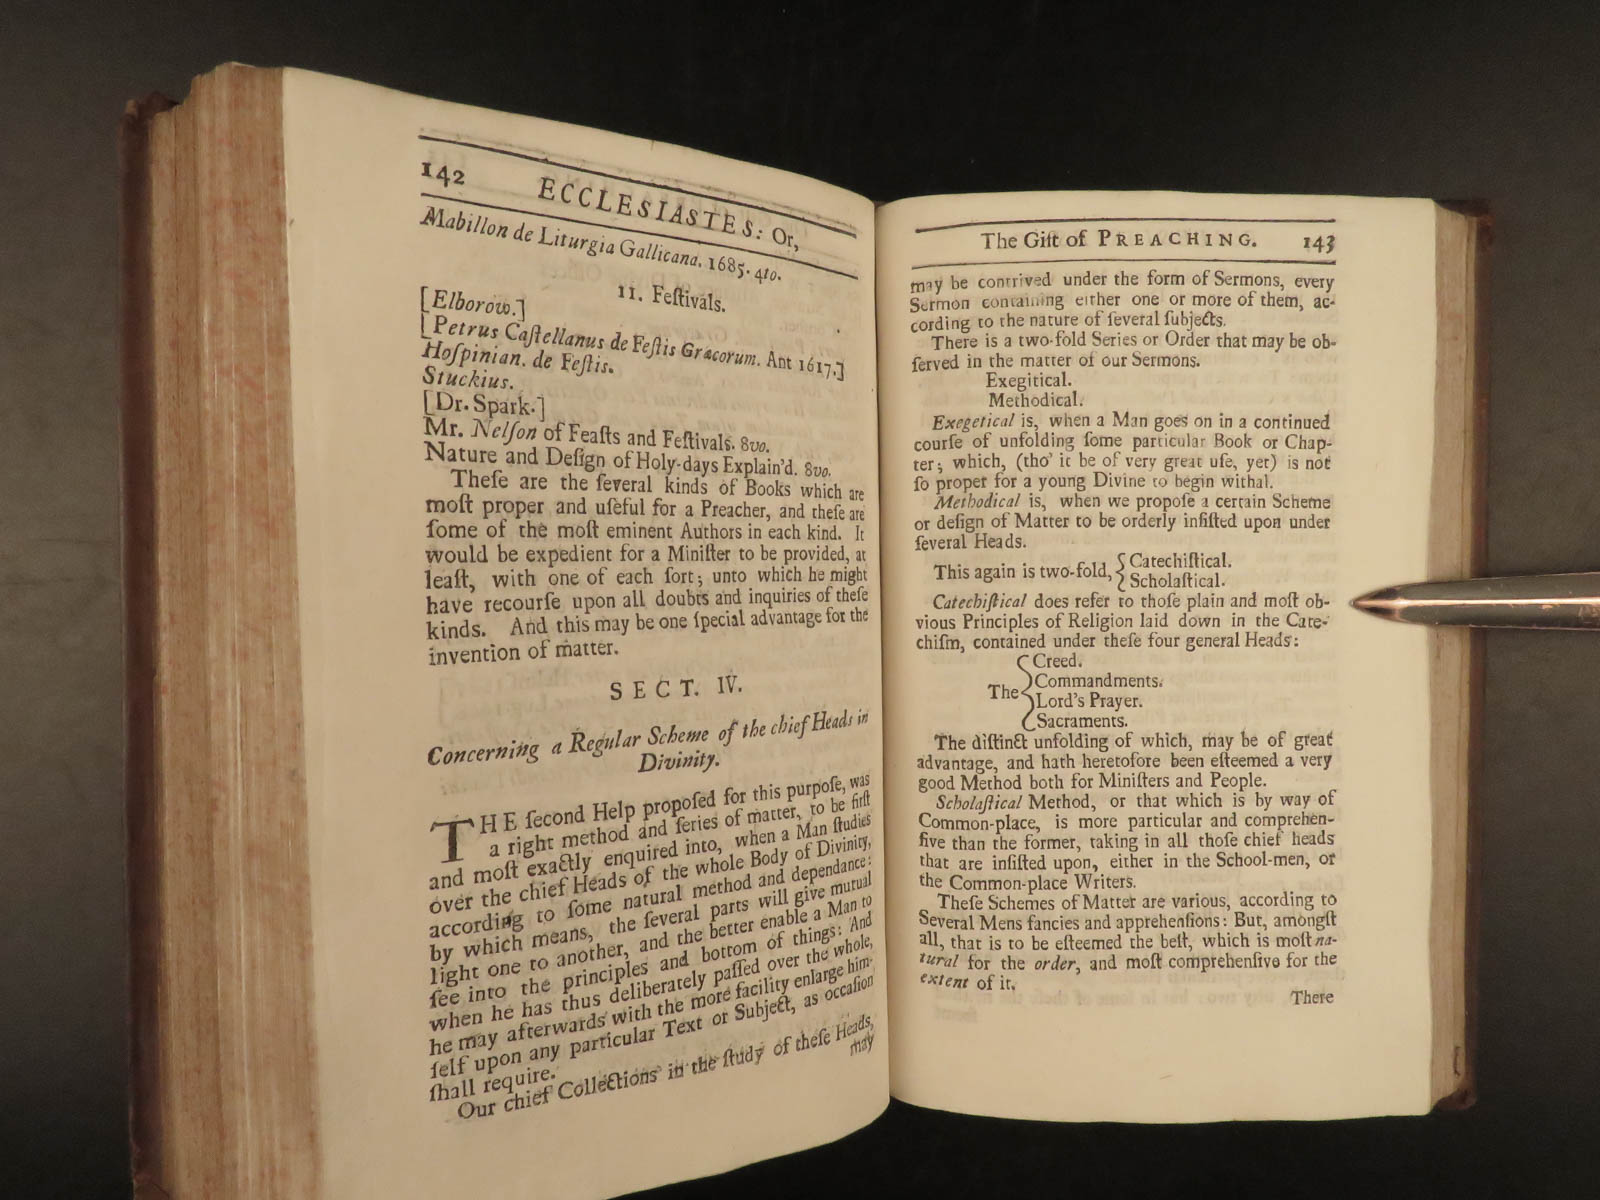 142 ECCLESIASTES: Or,
Mabillon de Liturgia Gallicana. 1685. 4to.
11. Feſtivals.
[Elborow.]
[Petrus Caſtellanus de Feſtis Græcorum. Ant 1617.]
Hoſpinian. de Feſtis.
Stuckius.
[Dr. Spark.]
Mr. Nelſon of Feaſts and Feſtivals. 8vo.
Nature and Deſign of Holy-days Explain'd. 8vo.
Theſe are the ſeveral kinds of Books which are
moſt proper and uſeful for a Preacher, and theſe are
ſome of the moſt eminent Authors in each kind. It
would be expedient for a Miniſter to be provided, at
leaſt, with one of each ſort; unto which he might
have recourſe upon all doubts and inquiries of theſe
kinds. And this may be one ſpecial advantage for the
invention of matter.
SECT. IV.
Concerning a Regular Scheme of the chief Heads in
Divinity.
THE ſecond Help propoſed for this purpoſe, was
a right method and ſeries of matter, to be firſt
and moſt exactly enquired into, when a Man ſtudies
over the chief Heads of the whole Body of Divinity,
according to ſome natural method and dependance:
by which means, the ſeveral parts will give mutual
light one to another, and the better enable a Man to
ſee into the principles and bottom of things: And
when he has thus deliberately paſſed over the whole,
he may afterwards with the more facility enlarge him-
ſelf upon any particular Text or Subject, as occaſion
ſhall require.
Our chief Collections in the ſtudy of theſe Heads,
may
The Gift of PREACHING. 143
may be contrived under the form of Sermons, every
Sermon containing either one or more of them, ac-
cording to the nature of ſeveral ſubjects.
There is a two-fold Series or Order that may be ob-
ſerved in the matter of our Sermons.
Exegitical.
Methodical.
Exegetical is, when a Man goes on in a continued
courſe of unfolding ſome particular Book or Chap-
ter; which, (tho' it be of very great uſe, yet) is not
ſo proper for a young Divine to begin withal.
Methodical is, when we propoſe a certain Scheme
or deſign of Matter to be orderly inſiſted upon under
ſeveral Heads.
This again is two-fold, { Catechiſtical.
Scholaſtical.
Catechiſtical does refer to thoſe plain and moſt ob-
vious Principles of Religion laid down in the Cate-
chiſm, contained under theſe four general Heads:
The { Creed.
Commandments.
Lord's Prayer.
Sacraments.
The diſtinct unfolding of which, may be of great
advantage, and hath heretofore been eſteemed a very
good Method both for Miniſters and People.
Scholaſtical Method, or that which is by way of
Common-place, is more particular and comprehen-
ſive than the former, taking in all thoſe chief heads
that are inſiſted upon, either in the School-men, or
the Common-place Writers.
Theſe Schemes of Matter are various, according to
Several Mens fancies and apprehenſions: But, amongſt
all, that is to be eſteemed the beſt, which is moſt na-
tural for the order, and moſt comprehenſive for the
extent of it.
There